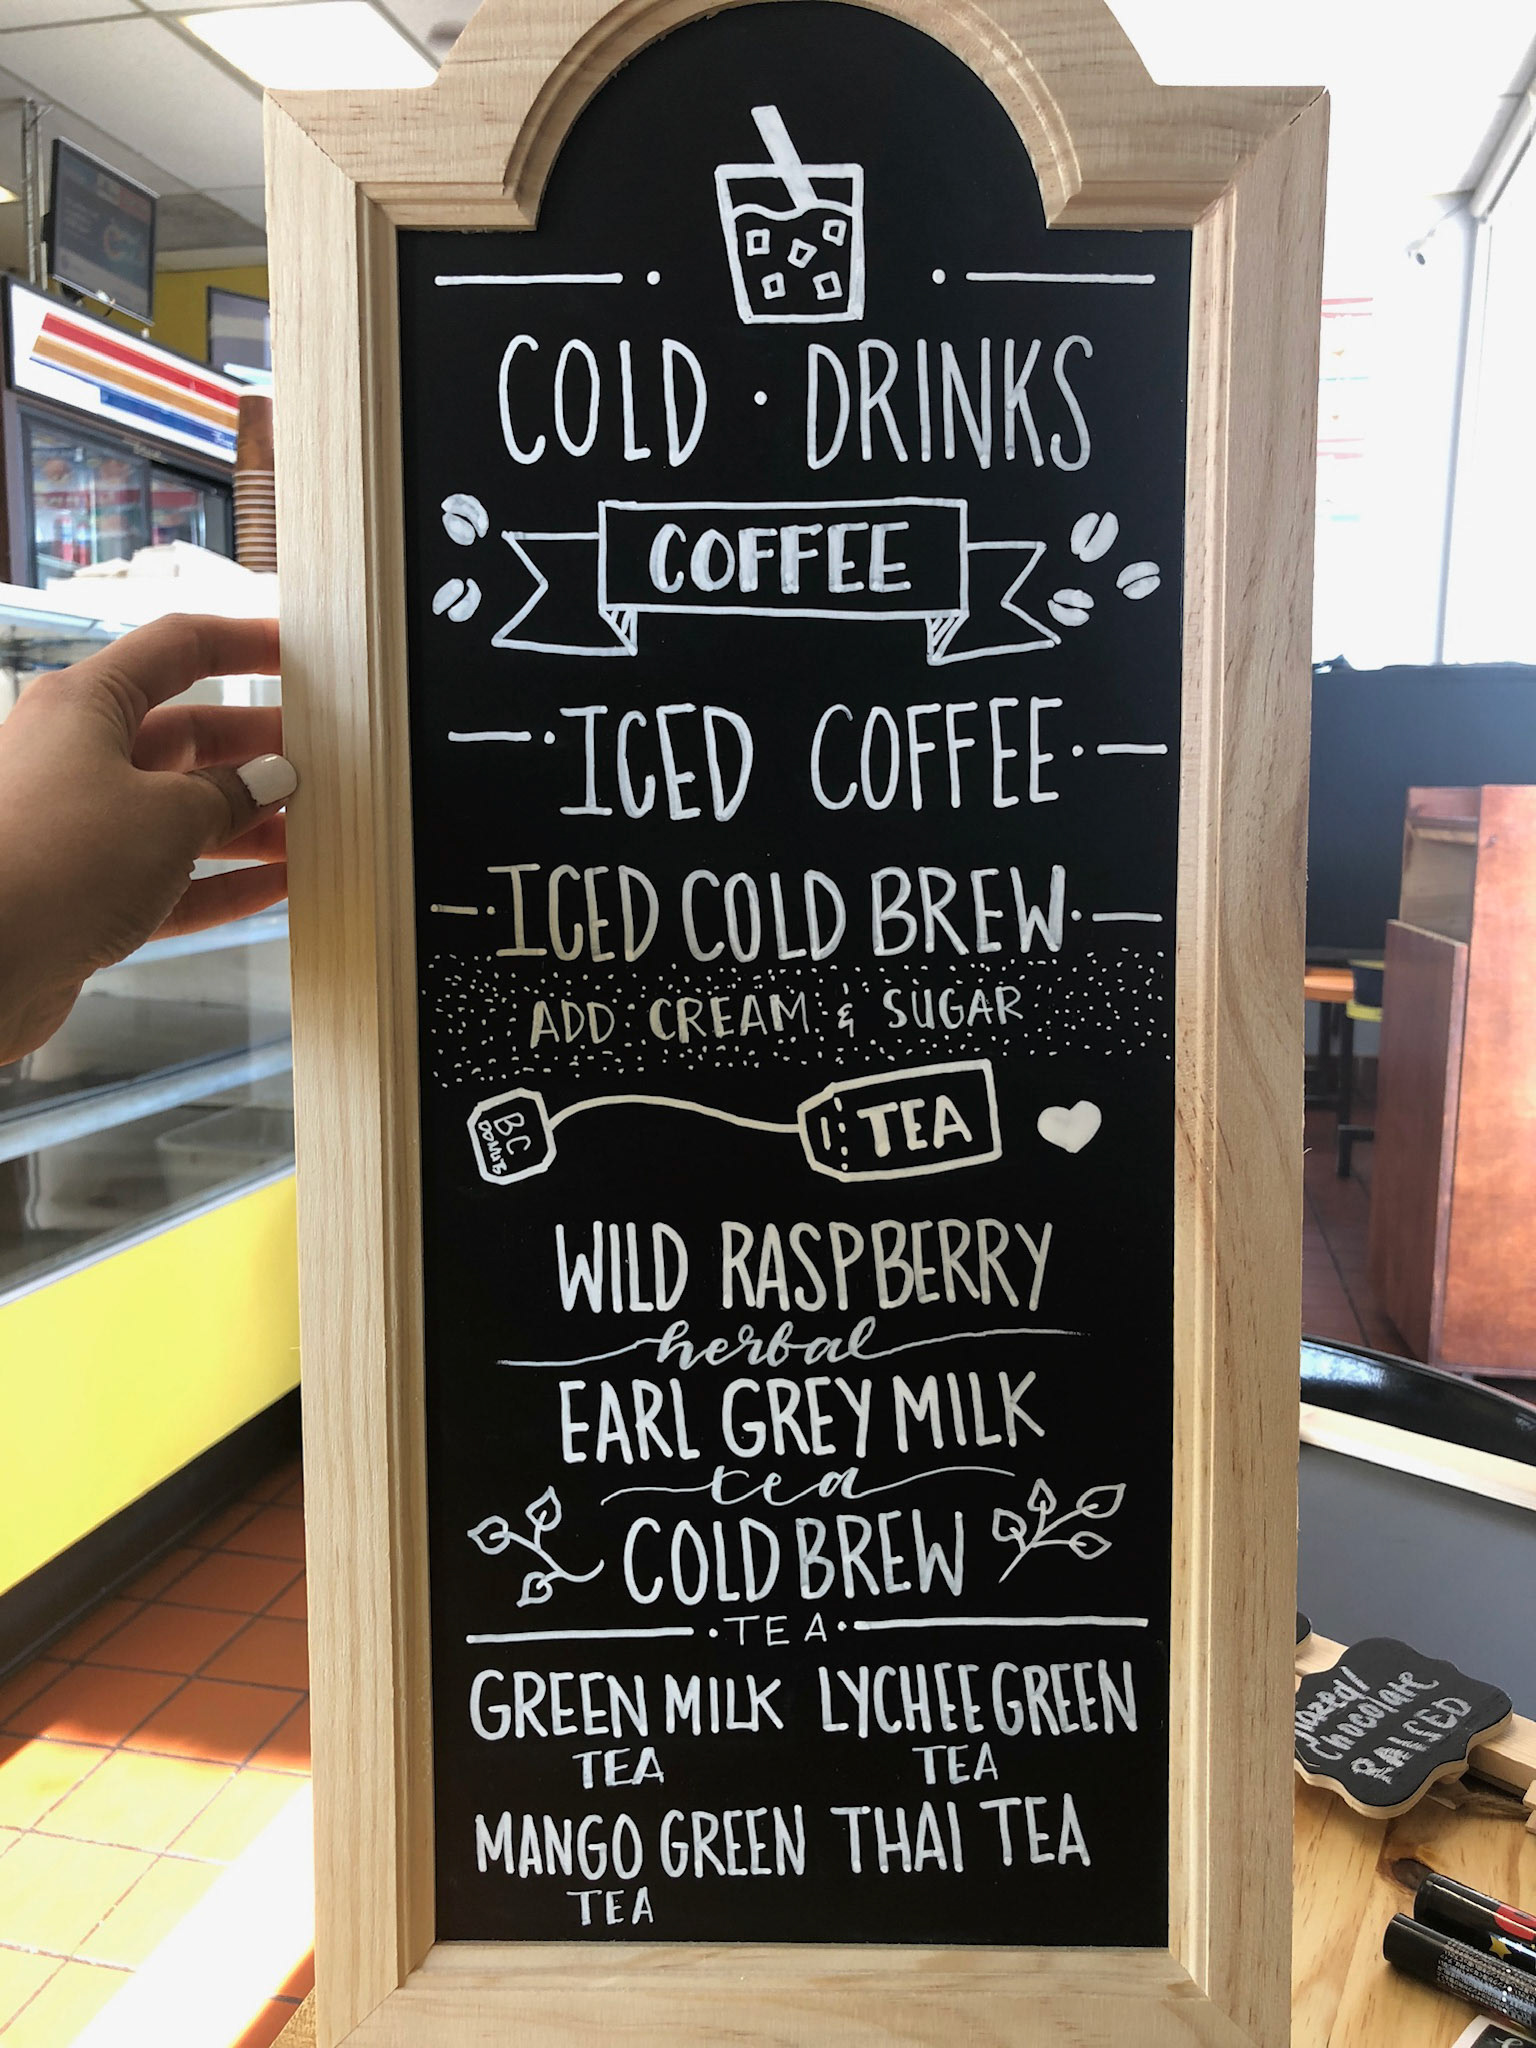 COLD · DRINKS
COFFEE
ICED COFFEE
ICED COLD BREW
ADD CREAM & SUGAR
BC
DONUT
TEA
WILD RASPBERRY
herbal
EARL GREY MILK
tea
COLD BREW
TEA
GREEN MILK
TEA
LYCHEE GREEN
TEA
MANGO GREEN
TEA
THAI TEA
Chocolate
RAISED